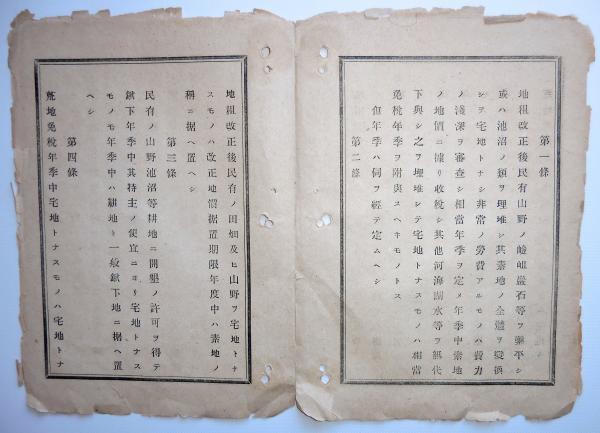 第一條
地租改正後民有山野ノ嶮岨巖石等ヲ鑿平シ
或ハ池沼ノ類ヲ埋堆シ其素地ノ全體ヲ變換
シヲ宅地トナシ非常ノ勞費アルモノハ費力
ノ淺深ヲ審査シ相當年季ヲ定メ年季中素地
ノ地價ニ據リ收稅シ其他河海湖水等ヲ無代
下與シ之ヲ埋堆シテ宅地トナスモノハ相當
免稅年季ヲ附與スヘキモノトス
但年季ハ伺ヲ經テ定ムヘシ
第二條
地租改正後民有ノ田畑及ヒ山野ヲ宅地トナ
スモノハ改正地價据置期限年度中ハ素地ノ
稱ニ据ヘ置ヘシ
第三條
民有ノ山野池沼等耕地ニ開墾ノ許可ヲ得テ
鍬下年季中其持主ノ便宜ニヨリ宅地トナス
モノモ年季中ハ耕地ト一般鍬下地ニ据ヘ置
ヘシ
第四條
荒地免稅年季中宅地トナスモノハ宅地トナ